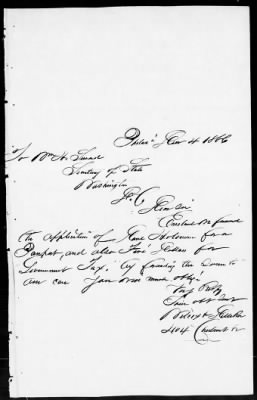 Philada Jan 4 1866
To Wm H. Seward
Secretary of State
Washington
D. C
Dear Sir
Enclosed Pls find
the Application of for a
Passport, and also Five Dollars for
Government Tax, by sending the Same to
me can you will much oblige
Very Resply
Your obt Servt

404 Chestnut St